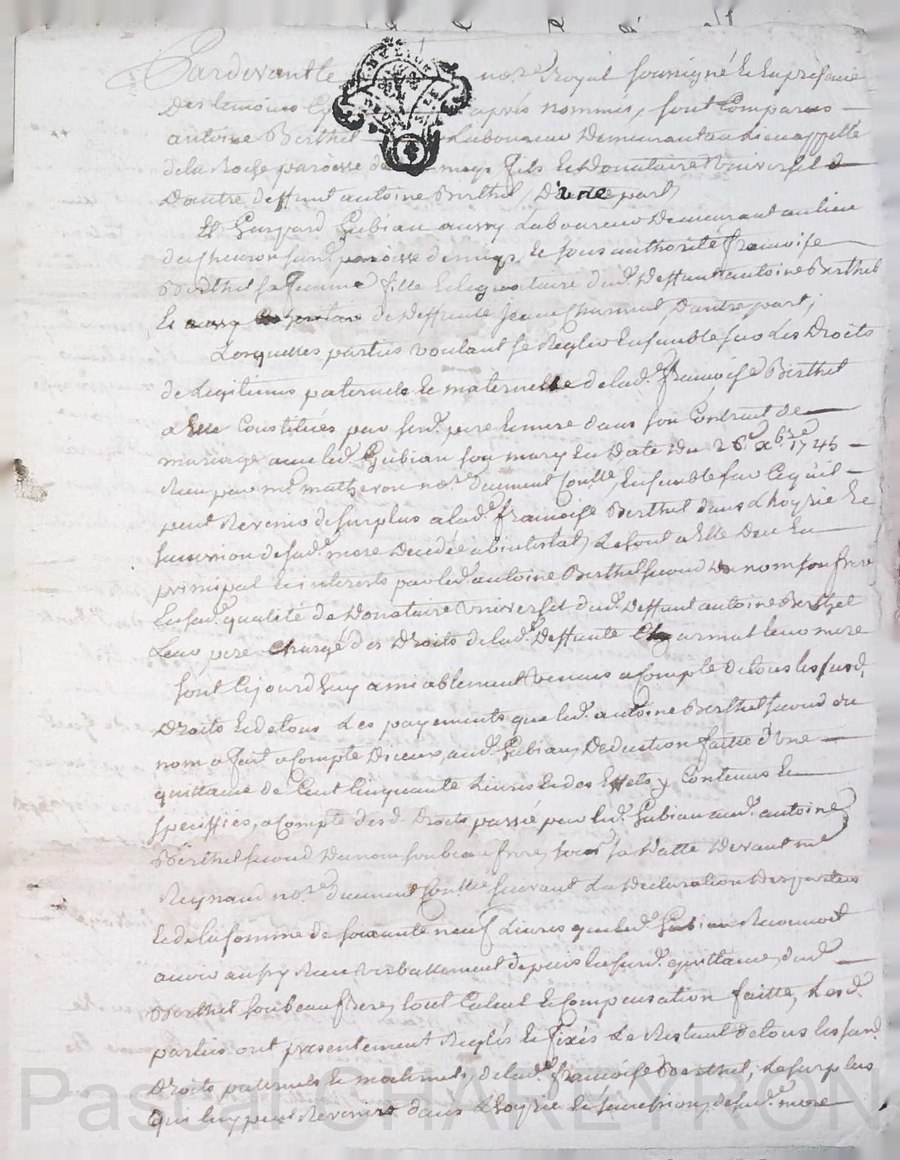 Pardevant le nore Royal soussigné et en presence
des temoins apres nommés, sont Comparus
antoine Berthet Laboureur Demeurant au Lieu appellé
de la Roche paroisse de fils et Donataire Universel de
Dautre deffunt antoine Berthet D'une part,
Et Gaspard Gubian aussy Laboureur Demeurant au lieu
paroisse de et sous authorité françoise
Berthet sa femme fille et legataire dud. Deffunt antoine Berthet
Et de Deffunte Jeanne Charmet Dautre part;
Lesquelles parties voulant se Regler Ensemble sur Les Droits
de Legitimes paternelle et maternelle de lad. françoise Berthet
a Elle Constitués par sesd. pere et mere dans son Contract de
mariage avec led. Gubian son mary En Datte du 26e xbre 1745
Reçu par me matheron nore Duement Conllé, Ensemble sur Ce qu'il
peut Revenir de surplus a lad. françoise Berthet dans L'hoyrie et
succession de sad. mere Decedée abintestat, Le tout a Elle Deu En
principal et interets par led. antoine Berthet second du nom son frere
En sad. qualité de Donataire Universel dud. Deffunt antoine Berthet
Leur pere Chargé des Droits de lad. Deffunte Charmet leur mere
sont Cejourd'huy amiablement venus a Compte de tous les susd.
Droits et de tous Les payements que led. antoine Berthet second du
nom a fait a Compte D'iceux, aud. Gubian, Deduction faitte d'Une
quittance de Cent Cinquante Livres et des Effets y Contenus et
speciffiés, a Compte desd. Droits passé par led. Gubian aud. antoine
Berthet second Du nom son beau frere, sous sa Datte Devant me
Reynaud nore Duement Conllé suivant La Declaration Des parties
Et de la somme de soixante neuf Livres que led. Gubian Reconnoit
avoir aussy Reçu verballement depuis la susd. quittance, dud.
Berthet son beau frere, tout Calcul et Compensation faitte, Lesd.
parties ont presentement Reglés et fixés Le Restant de tous les susd.
Droits paternels et maternels de lad. françoise Berthet, Le surplus
qui luy peut Revenir dans L'hoyrie et succession, de sad. mere
Pascal CHAREYRON